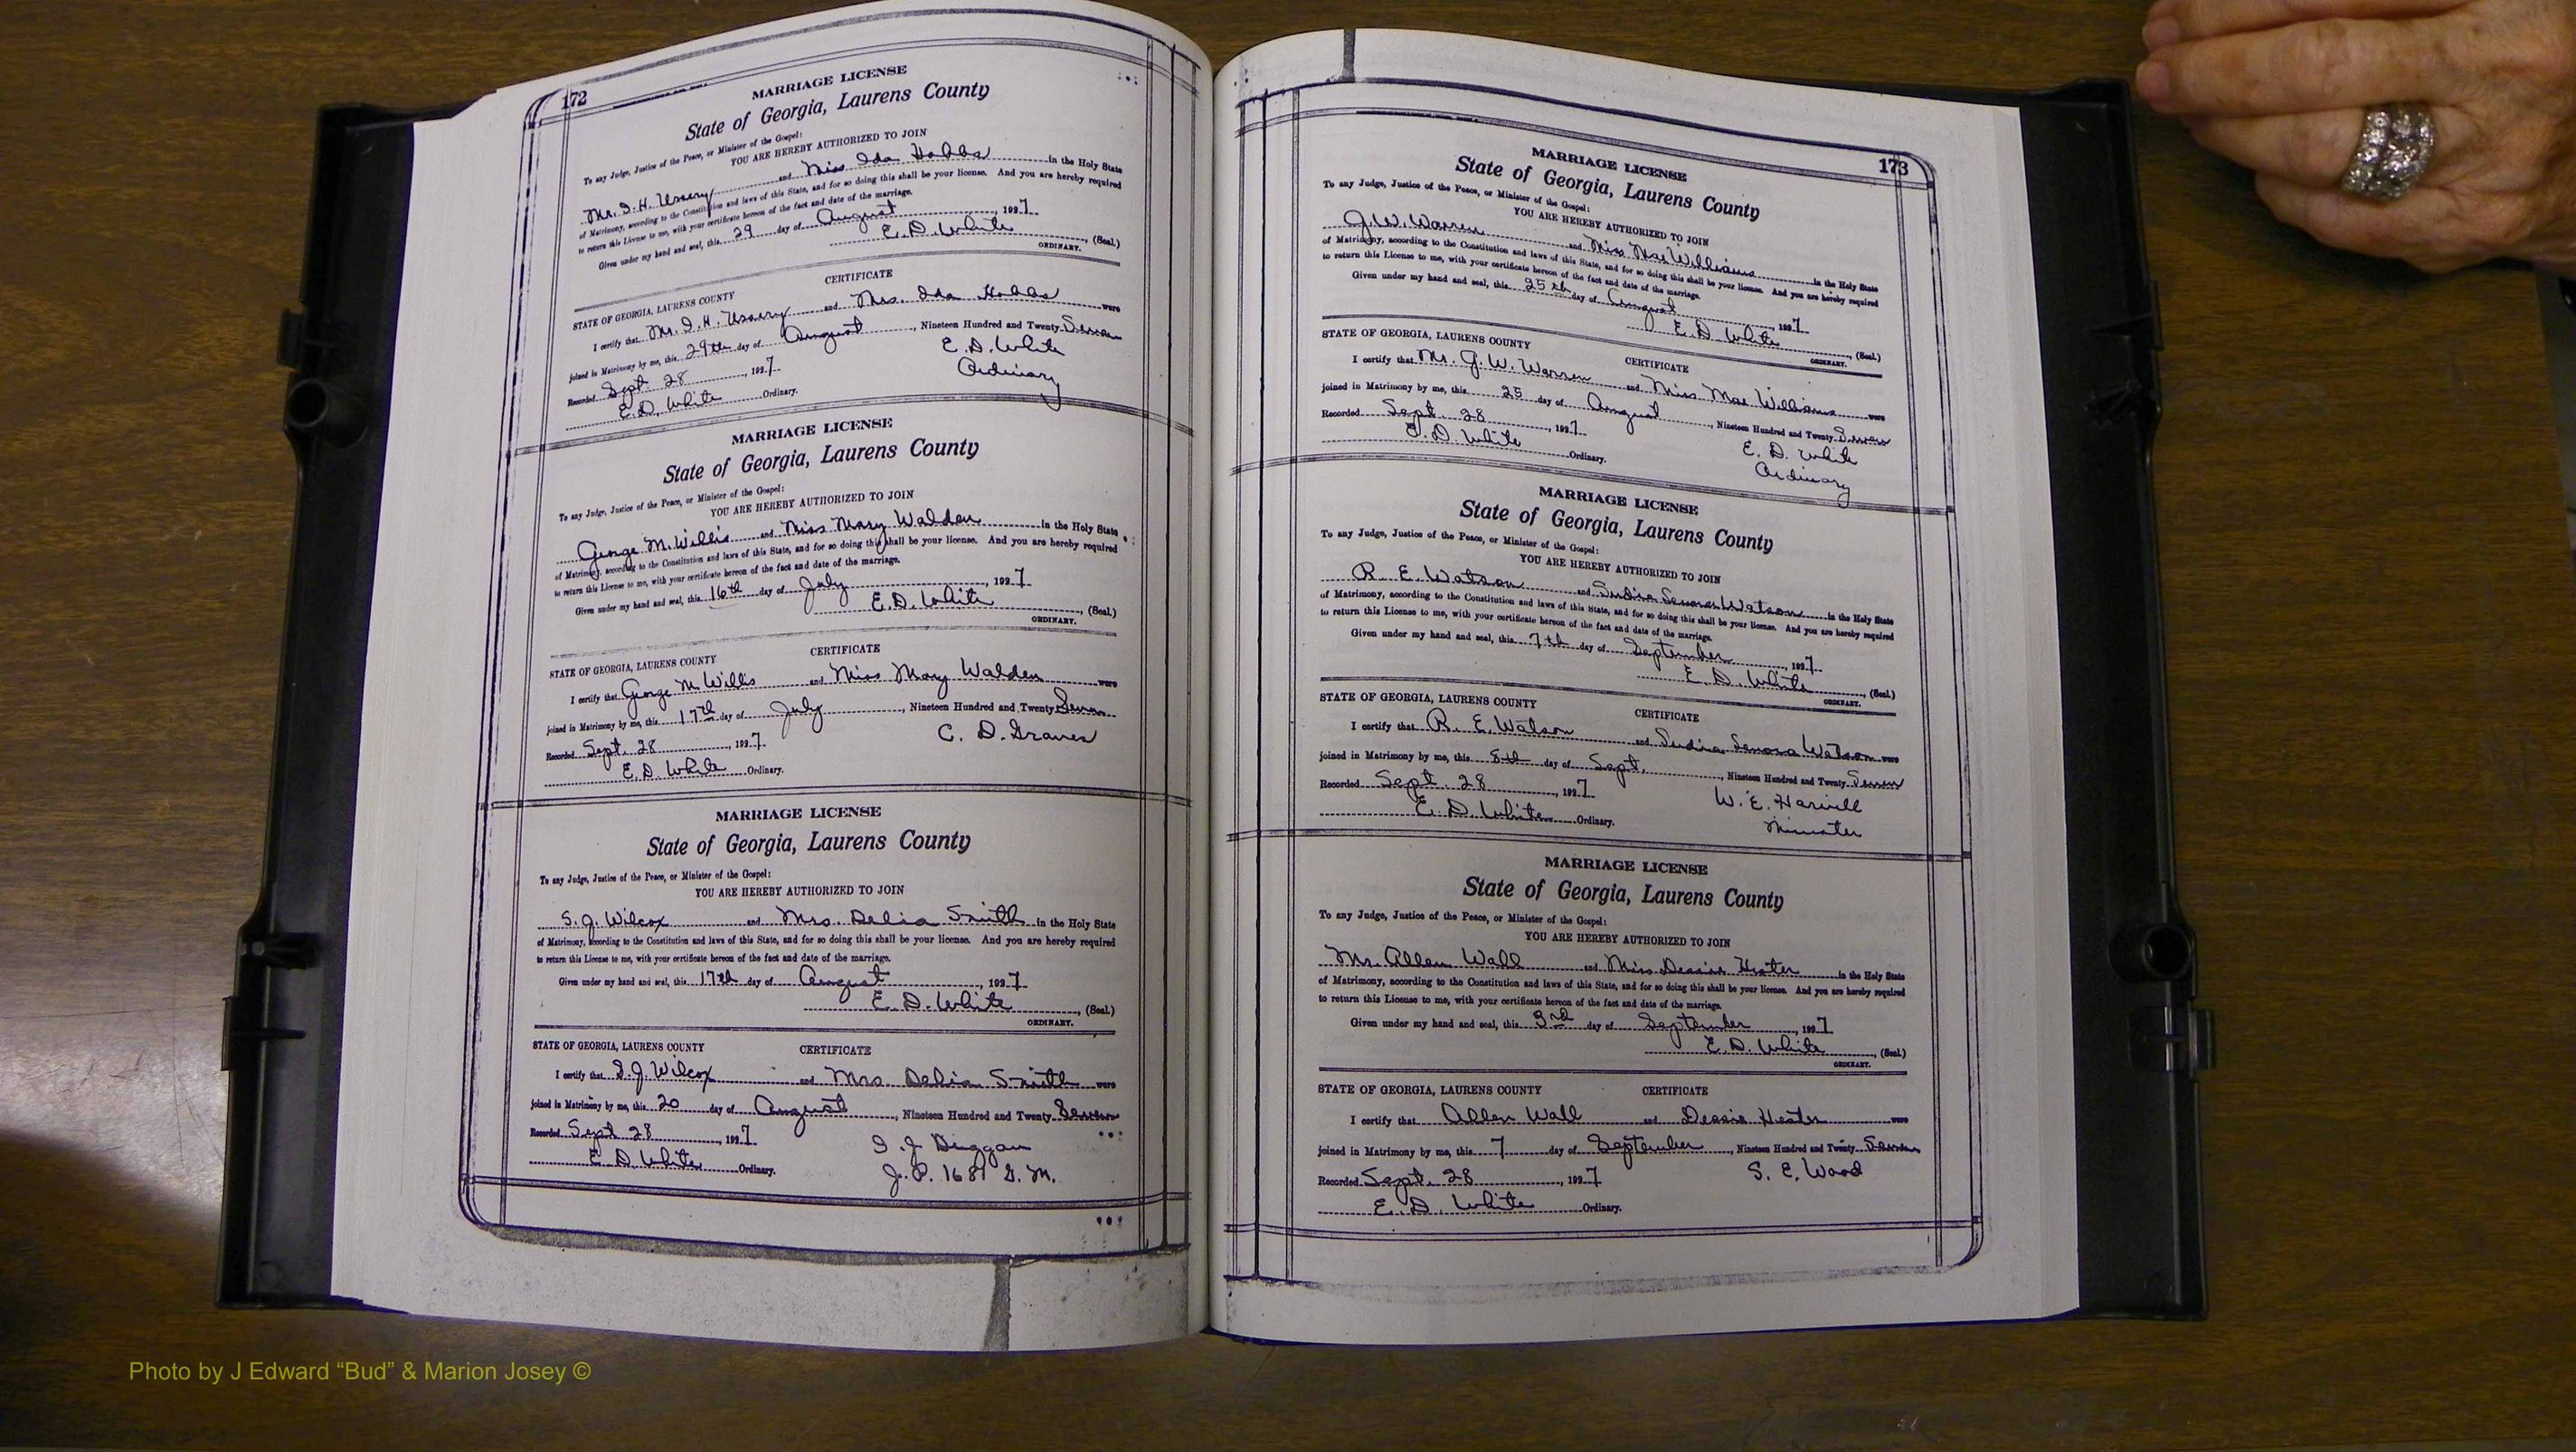 172
MARRIAGE LICENSE
State of Georgia, Laurens County
To any Judge, Justice of the Peace, or Minister of the Gospel:
YOU ARE HEREBY AUTHORIZED TO JOIN
Mr. I. H. Ussery and Miss Ida Hobbs in the Holy State
of Matrimony, according to the Constitution and laws of this State, and for so doing this shall be your license. And you are hereby required
to return this License to me, with your certificate hereon of the fact and date of the marriage.
Given under my hand and seal, this 29 day of August, 1927
E. D. White, (Seal.)
ORDINARY.
CERTIFICATE
STATE OF GEORGIA, LAURENS COUNTY
I certify that Mr. I. H. Ussery and Mrs. Ida Hobbs were
joined in Matrimony by me, this 29th day of August, Nineteen Hundred and Twenty Seven
Recorded Sept. 28, 1927 E. D. White
E. D. White Ordinary. Ordinary
MARRIAGE LICENSE
State of Georgia, Laurens County
To any Judge, Justice of the Peace, or Minister of the Gospel:
YOU ARE HEREBY AUTHORIZED TO JOIN
George M. Willis and Miss Mary Walden in the Holy State
of Matrimony, according to the Constitution and laws of this State, and for so doing this shall be your license. And you are hereby required
to return this License to me, with your certificate hereon of the fact and date of the marriage.
Given under my hand and seal, this 16th day of July, 1927
E. D. White, (Seal.)
ORDINARY.
CERTIFICATE
STATE OF GEORGIA, LAURENS COUNTY
I certify that George M Willis and Miss Mary Walden were
joined in Matrimony by me, this 17th day of July, Nineteen Hundred and Twenty Seven
Recorded Sept. 28, 1927 C. D. Graves
E. D. White Ordinary.
MARRIAGE LICENSE
State of Georgia, Laurens County
To any Judge, Justice of the Peace, or Minister of the Gospel:
YOU ARE HEREBY AUTHORIZED TO JOIN
S. J. Wilcox and Mrs. Delia Smith in the Holy State
of Matrimony, according to the Constitution and laws of this State, and for so doing this shall be your license. And you are hereby required
to return this License to me, with your certificate hereon of the fact and date of the marriage.
Given under my hand and seal, this 17th day of August, 1927
E. D. White, (Seal.)
ORDINARY.
STATE OF GEORGIA, LAURENS COUNTY CERTIFICATE
I certify that S. J. Wilcox and Mrs Delia Smith were
joined in Matrimony by me, this 20 day of August, Nineteen Hundred and Twenty Seven
Recorded Sept 28, 1927 I. J. Duggan
E. D. White Ordinary. J. P. 1681 G. M.
173
MARRIAGE LICENSE
State of Georgia, Laurens County
To any Judge, Justice of the Peace, or Minister of the Gospel:
YOU ARE HEREBY AUTHORIZED TO JOIN
G. W. Warren and Miss Mae Williams in the Holy State
of Matrimony, according to the Constitution and laws of this State, and for so doing this shall be your license. And you are hereby required
to return this License to me, with your certificate hereon of the fact and date of the marriage.
Given under my hand and seal, this 25th day of August, 1927
E. D. White, (Seal.)
ORDINARY.
STATE OF GEORGIA, LAURENS COUNTY CERTIFICATE
I certify that Mr. G. W. Warren and Miss Mae Williams were
joined in Matrimony by me, this 25 day of August, Nineteen Hundred and Twenty Seven
Recorded Sept. 28, 1927 E. D. White
E. D. White Ordinary. Ordinary
MARRIAGE LICENSE
State of Georgia, Laurens County
To any Judge, Justice of the Peace, or Minister of the Gospel:
YOU ARE HEREBY AUTHORIZED TO JOIN
R. E. Watson and Watson in the Holy State
of Matrimony, according to the Constitution and laws of this State, and for so doing this shall be your license. And you are hereby required
to return this License to me, with your certificate hereon of the fact and date of the marriage.
Given under my hand and seal, this 7th day of September, 1927
E. D. White, (Seal.)
ORDINARY.
STATE OF GEORGIA, LAURENS COUNTY CERTIFICATE
I certify that R. E. Watson and Watson were
joined in Matrimony by me, this 8th day of Sept., Nineteen Hundred and Twenty Seven
Recorded Sept. 28, 1927 W. E. Harvill
E. D. White Ordinary. Minister
MARRIAGE LICENSE
State of Georgia, Laurens County
To any Judge, Justice of the Peace, or Minister of the Gospel:
YOU ARE HEREBY AUTHORIZED TO JOIN
Mr. Allen Wall and Miss Dessie Hester in the Holy State
of Matrimony, according to the Constitution and laws of this State, and for so doing this shall be your license. And you are hereby required
to return this License to me, with your certificate hereon of the fact and date of the marriage.
Given under my hand and seal, this 3rd day of September, 1927
E. D. White, (Seal.)
ORDINARY.
STATE OF GEORGIA, LAURENS COUNTY CERTIFICATE
I certify that Allen Wall and Dessie Hester were
joined in Matrimony by me, this 7 day of September, Nineteen Hundred and Twenty Seven
Recorded Sept. 28, 1927 S. E. Wood
E. D. White Ordinary.
Photo by J Edward “Bud” & Marion Josey ©